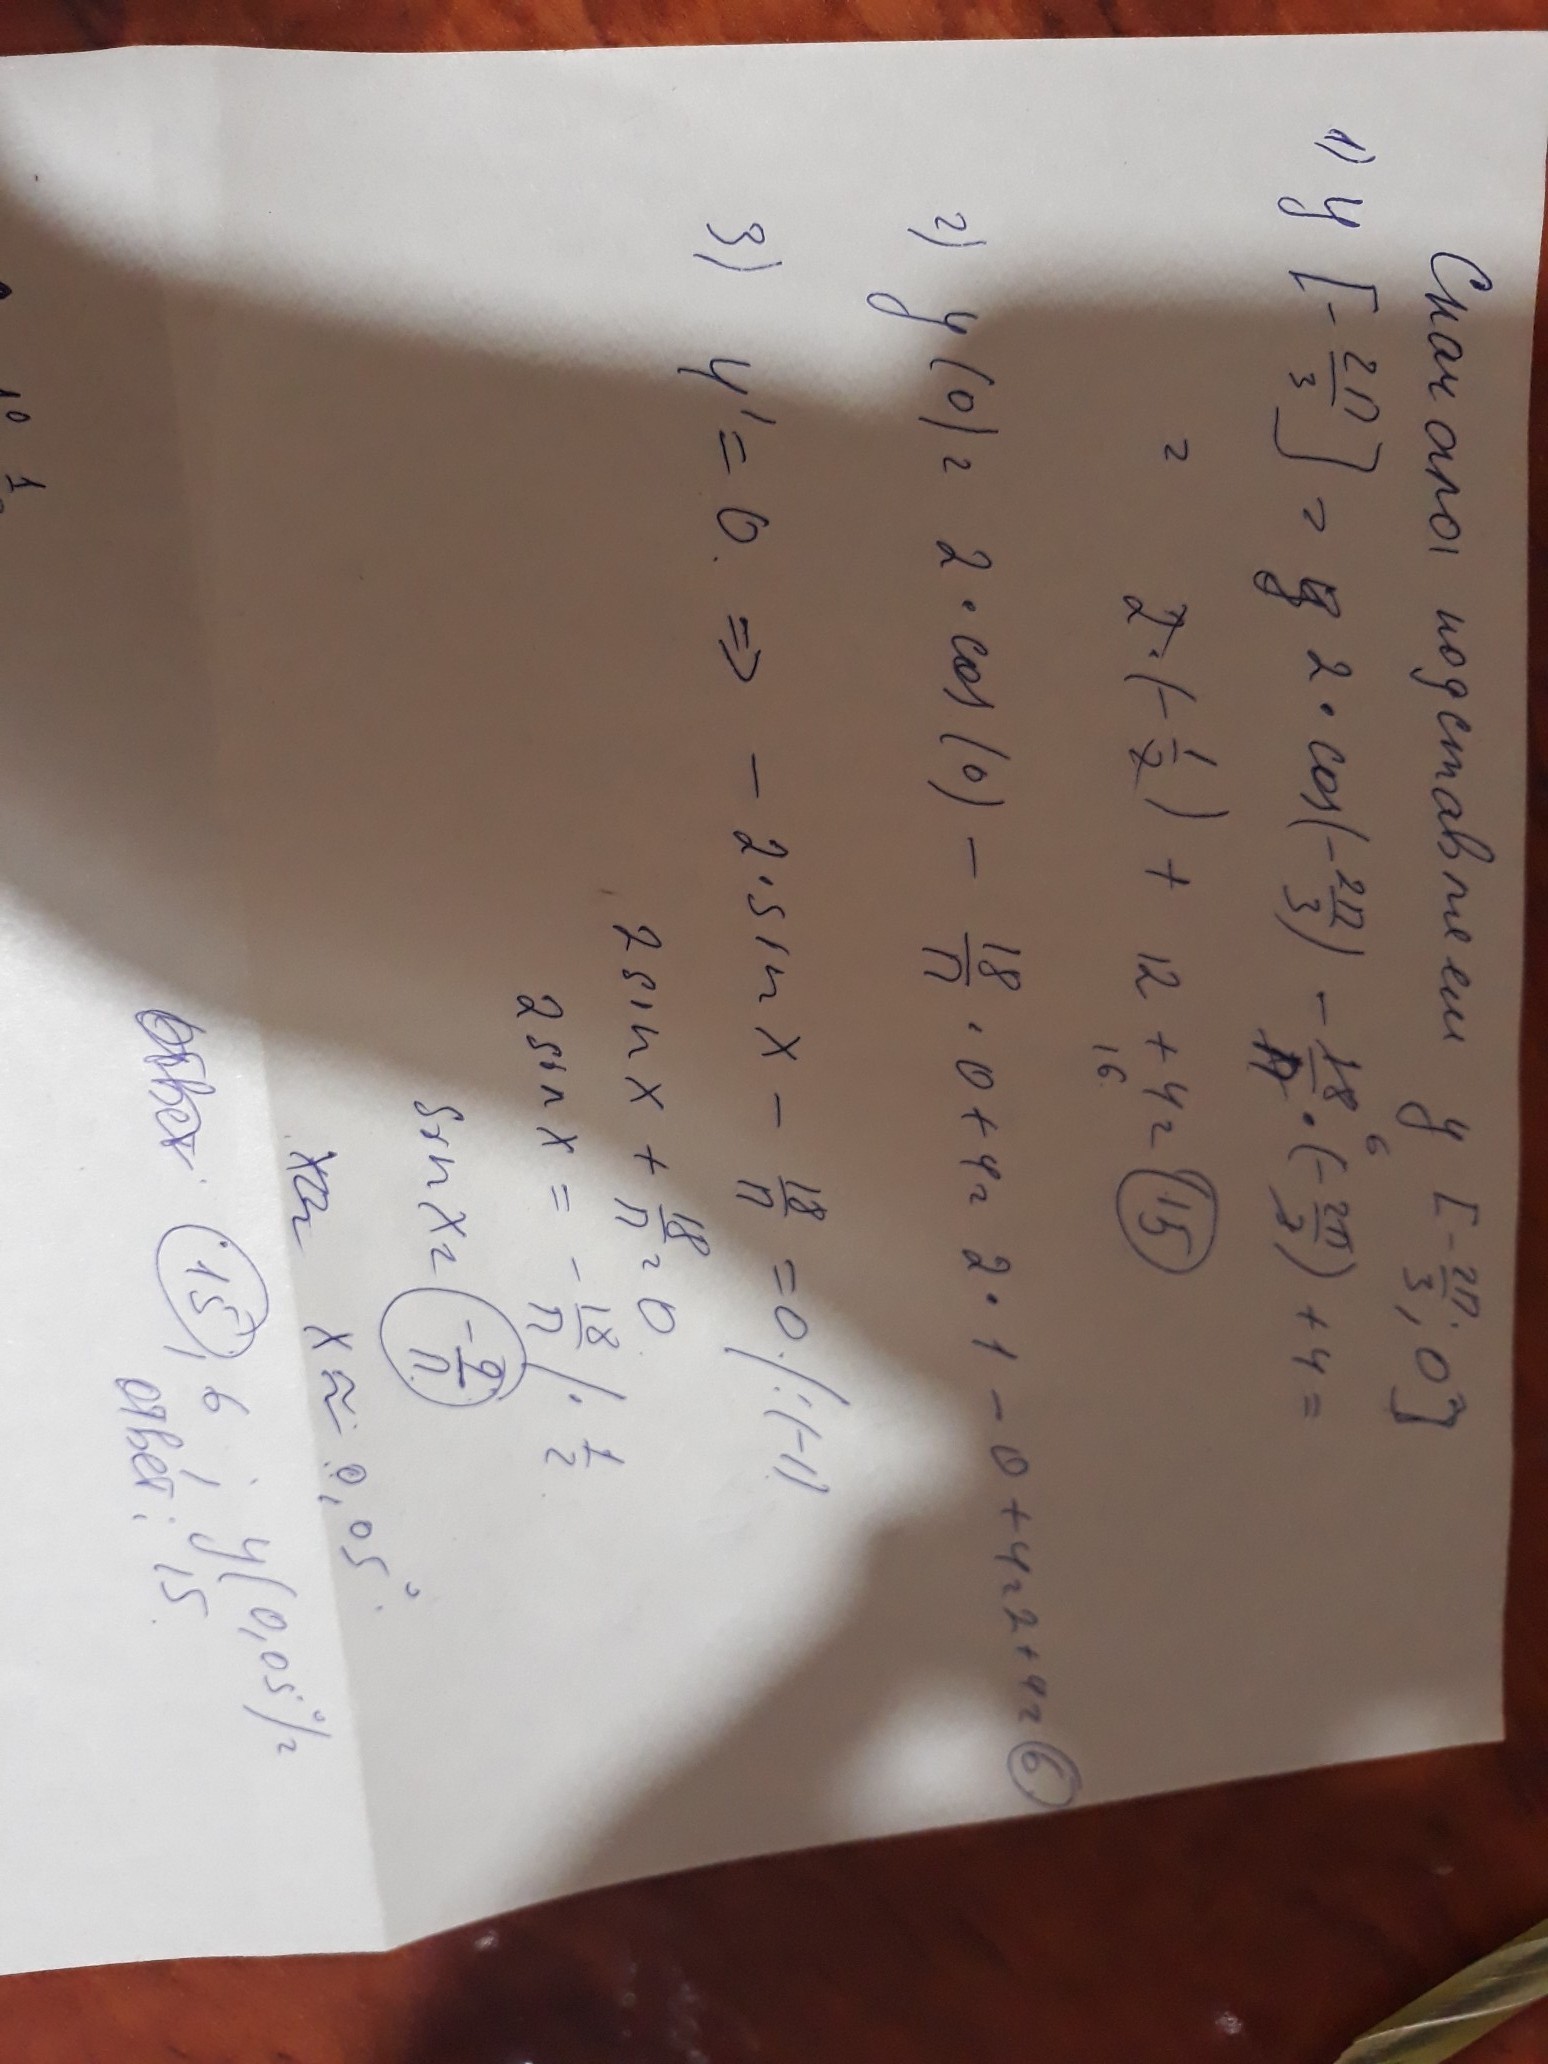 Сначала подставляем y [-2π/3; 0]
1) y [-2π/3] = 2·cos(-2π/3) - 18/π · (-2π/3) + 4 =
= 2·(-1/2) + 12 + 4 = 15
16
2) y(0) = 2·cos(0) - 18/π · 0 + 4 = 2·1 - 0 + 4 = 2 + 4 = 6
3) y' = 0. => - 2·sin x - 18/π = 0 /:(-1)
2 sin x + 18/π = 0
2 sin x = - 18/π /· 1/2
sin x = - 9/π
x ≈ 0,05°
15, 6; y(0,05°) =
ответ: 15